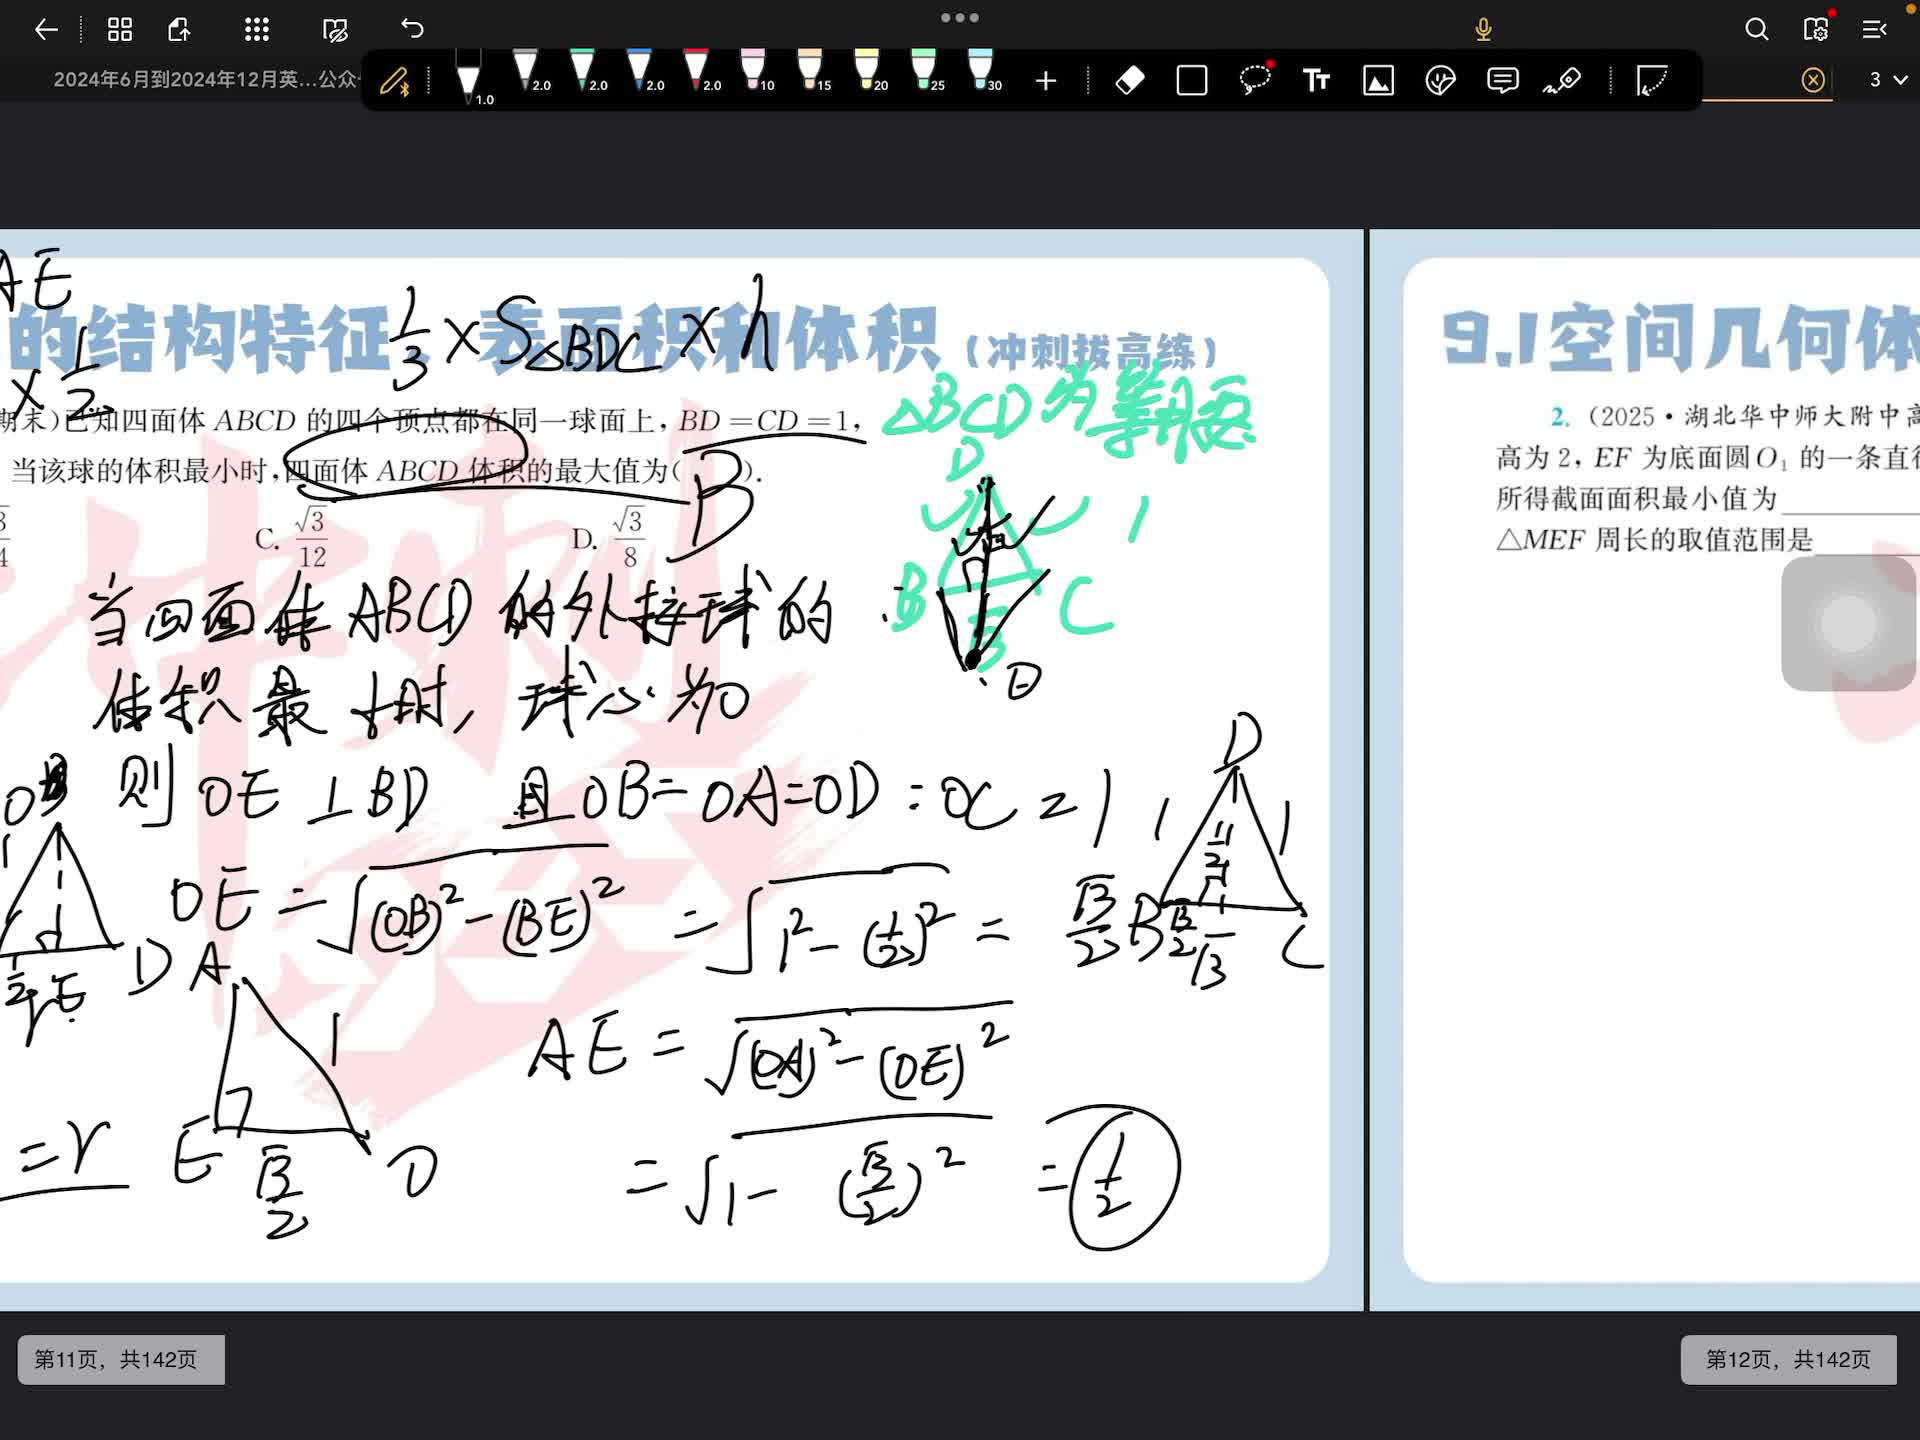 2024年6月到2024年12月英...公众
1.0
2.0
2.0
2.0
2.0
10
15
20
25
30
Tт
3
AE
的结构特征、表面积和体积(冲刺拔高练)
1/3 × S△BDC × h
× 1/2
期末)已知四面体 ABCD 的四个顶点都在同一球面上, BD=CD=1,
△BCD为等腰
当该球的体积最小时,四面体 ABCD 体积的最大值为( ).
B
C. √3/12
D. √3/8
D
1
B
C
√3
O
当四面体ABCD的外接球的
体积最小时, 球心为O
则 OE⊥BD 且OB=OA=OD=OC=1
OE=√(OB)²-(BE)² = √1²-(1/2)² = √3/2
D
1
1
1/2
B
√3/2
√3
C
1
1/2
E
D
A
1
E
√3/2
O
=r
AE=√(OA)²-(OE)²
=√1-(√3/2)² = 1/2
冲刺
第11页，共142页
9.1空间几何体
2. (2025·湖北华中师大附中高
高为 2, EF 为底面圆O₁ 的一条直径
所得截面面积最小值为
△MEF 周长的取值范围是
第12页，共142页